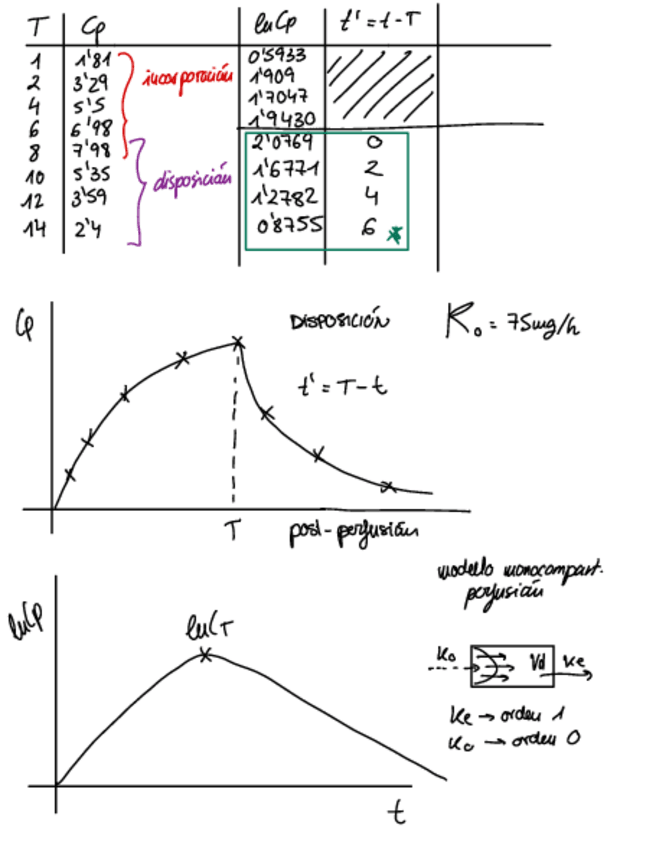 T Cp lnCp t' = t - T
1 1'81 0'5933
2 3'29 1'909
4 5'5 1'7047
6 6'98 1'9430
8 7'98 2'0769 0
10 5'35 1'6771 2
12 3'59 1'2782 4
14 2'4 0'8755 6 *
incorporación
disposición
Cp
DISPOSICIÓN
K₀ = 75mg/h
t' = T - t
T
post-perfusión
lnCp
lnCT
t
modelo monocompart.
perfusión
K₀ Vd Ke
Ke → orden 1
K₀ → orden 0